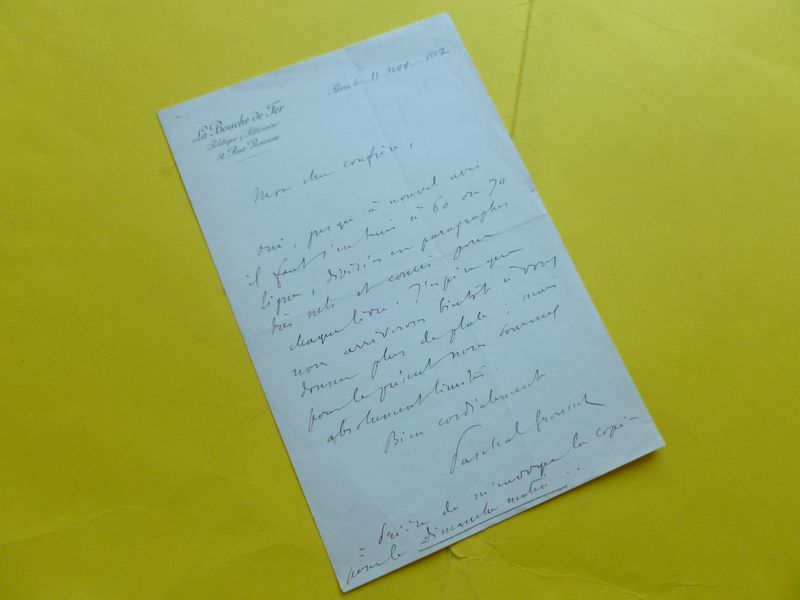 Paris, le 11 nov. 1892
La Bouche de Fer
Politique & Littéraire
51, Rue Vivienne
Mon cher confrère,
oui, jusqu'à nouvel avis
il faut s'en tenir à 60 ou 70
lignes, divisées en paragraphes
très nets et concis pour
chaque livre. J'espère que
nous arriverons bientôt à vous
donner plus de place ; mais
pour le présent nous sommes
absolument limités.
Bien cordialement.
Paschal Grousset
Prière de m'envoyer la copie
pour le dimanche matin.